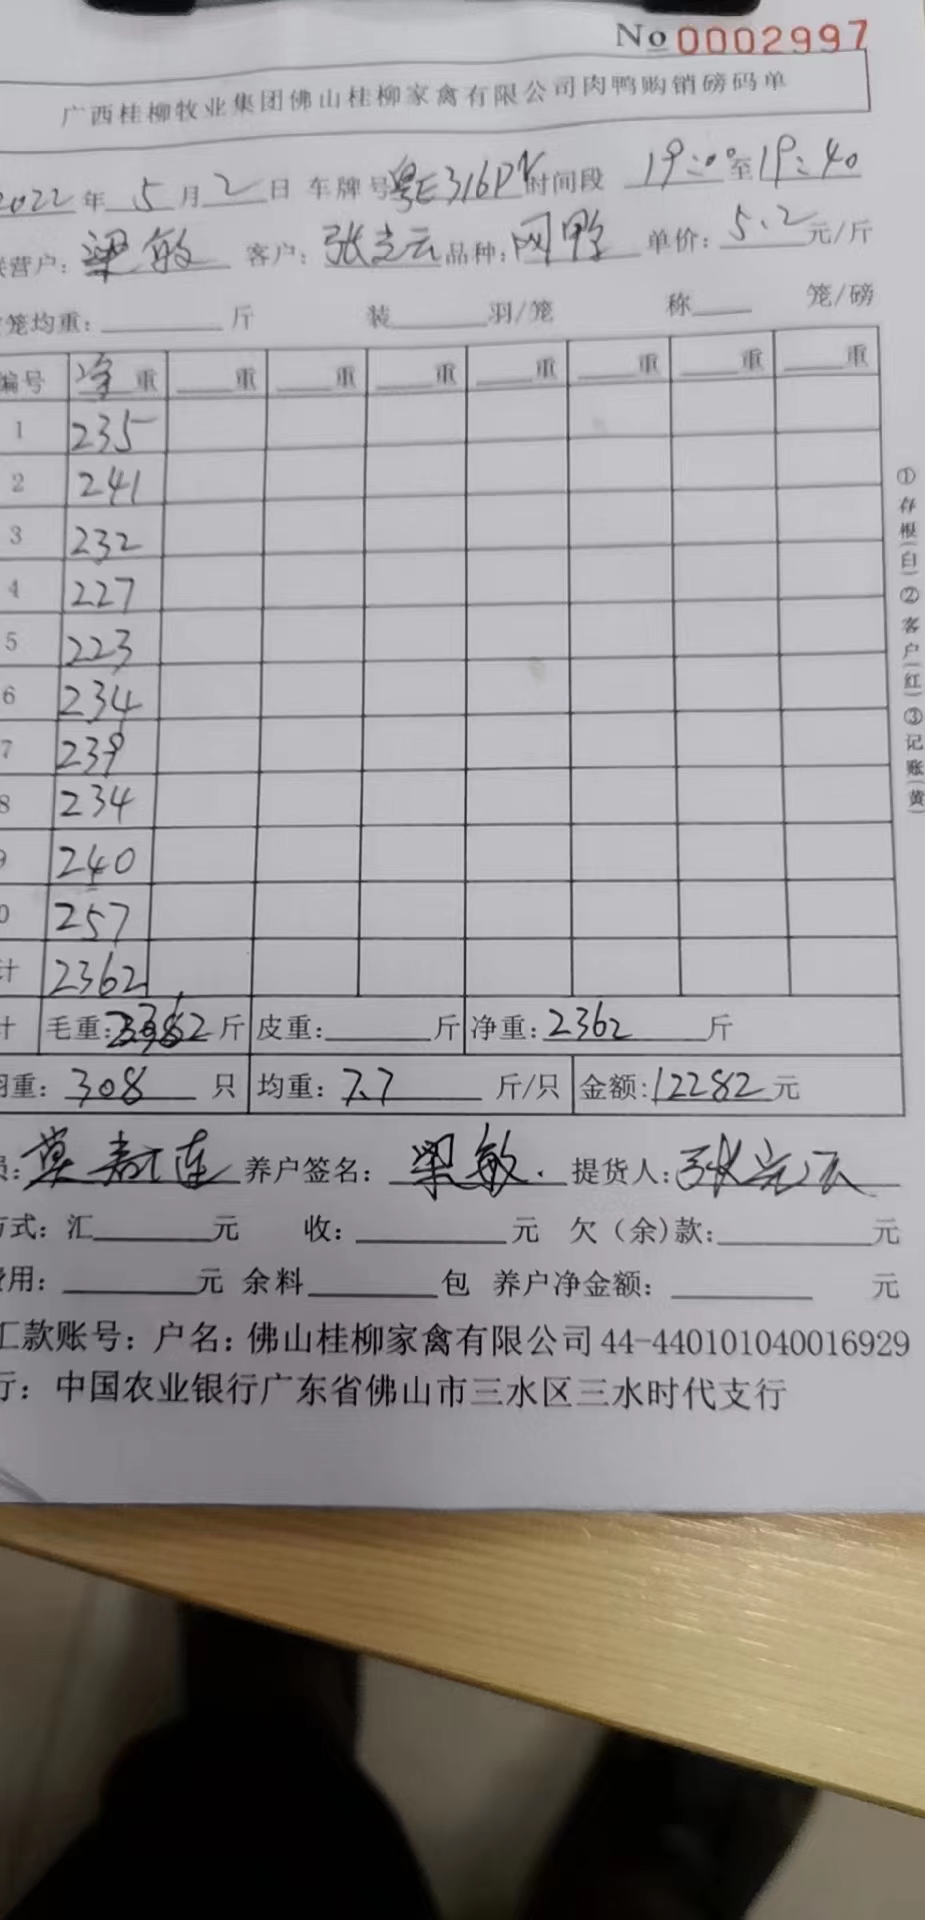 No 0002997
广西桂柳牧业集团佛山桂柳家禽有限公司肉鸭购销磅码单
2022年 5月 2日 车牌号 粤E316P 时间段 19:00至19:40
营户: 梁敏 客户: 张 云 品种: 网鸭 单价: 5.2元/斤
笼均重: 斤 装 羽/笼 称 笼/磅
编号 净重 重 重 重 重 重 重 重
1 235
2 241
3 232
4 227
5 223
6 234
7 239
8 234
9 240
0 257
计 2362
计 毛重: 2362斤 皮重: 斤 净重: 2362 斤
重: 308 只 均重: 7.7 斤/只 金额: 12282元
员: 莫 连 养户签名: 梁敏. 提货人: 张 云
方式: 汇 元 收: 元 欠(余)款: 元
费用: 元 余料 包 养户净金额: 元
汇款账号: 户名: 佛山桂柳家禽有限公司 44-440101040016929
行: 中国农业银行广东省佛山市三水区三水时代支行
①存根(白)②客户(红)③记账(黄)